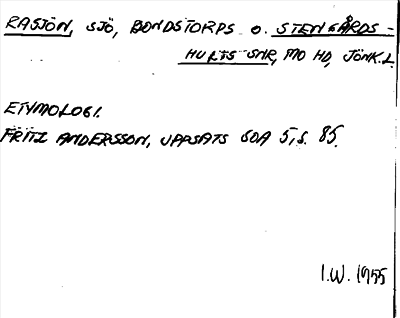 RASJÖN, SJÖ, BONDSTORPS O. STENGÅRDS-
HULTS SNR, MO HD, JÖNK.L.
ETYMOLOGI.
FRITZ ANDERSSON, UPPSATS SOA 5, S. 85.
I.W. 1955